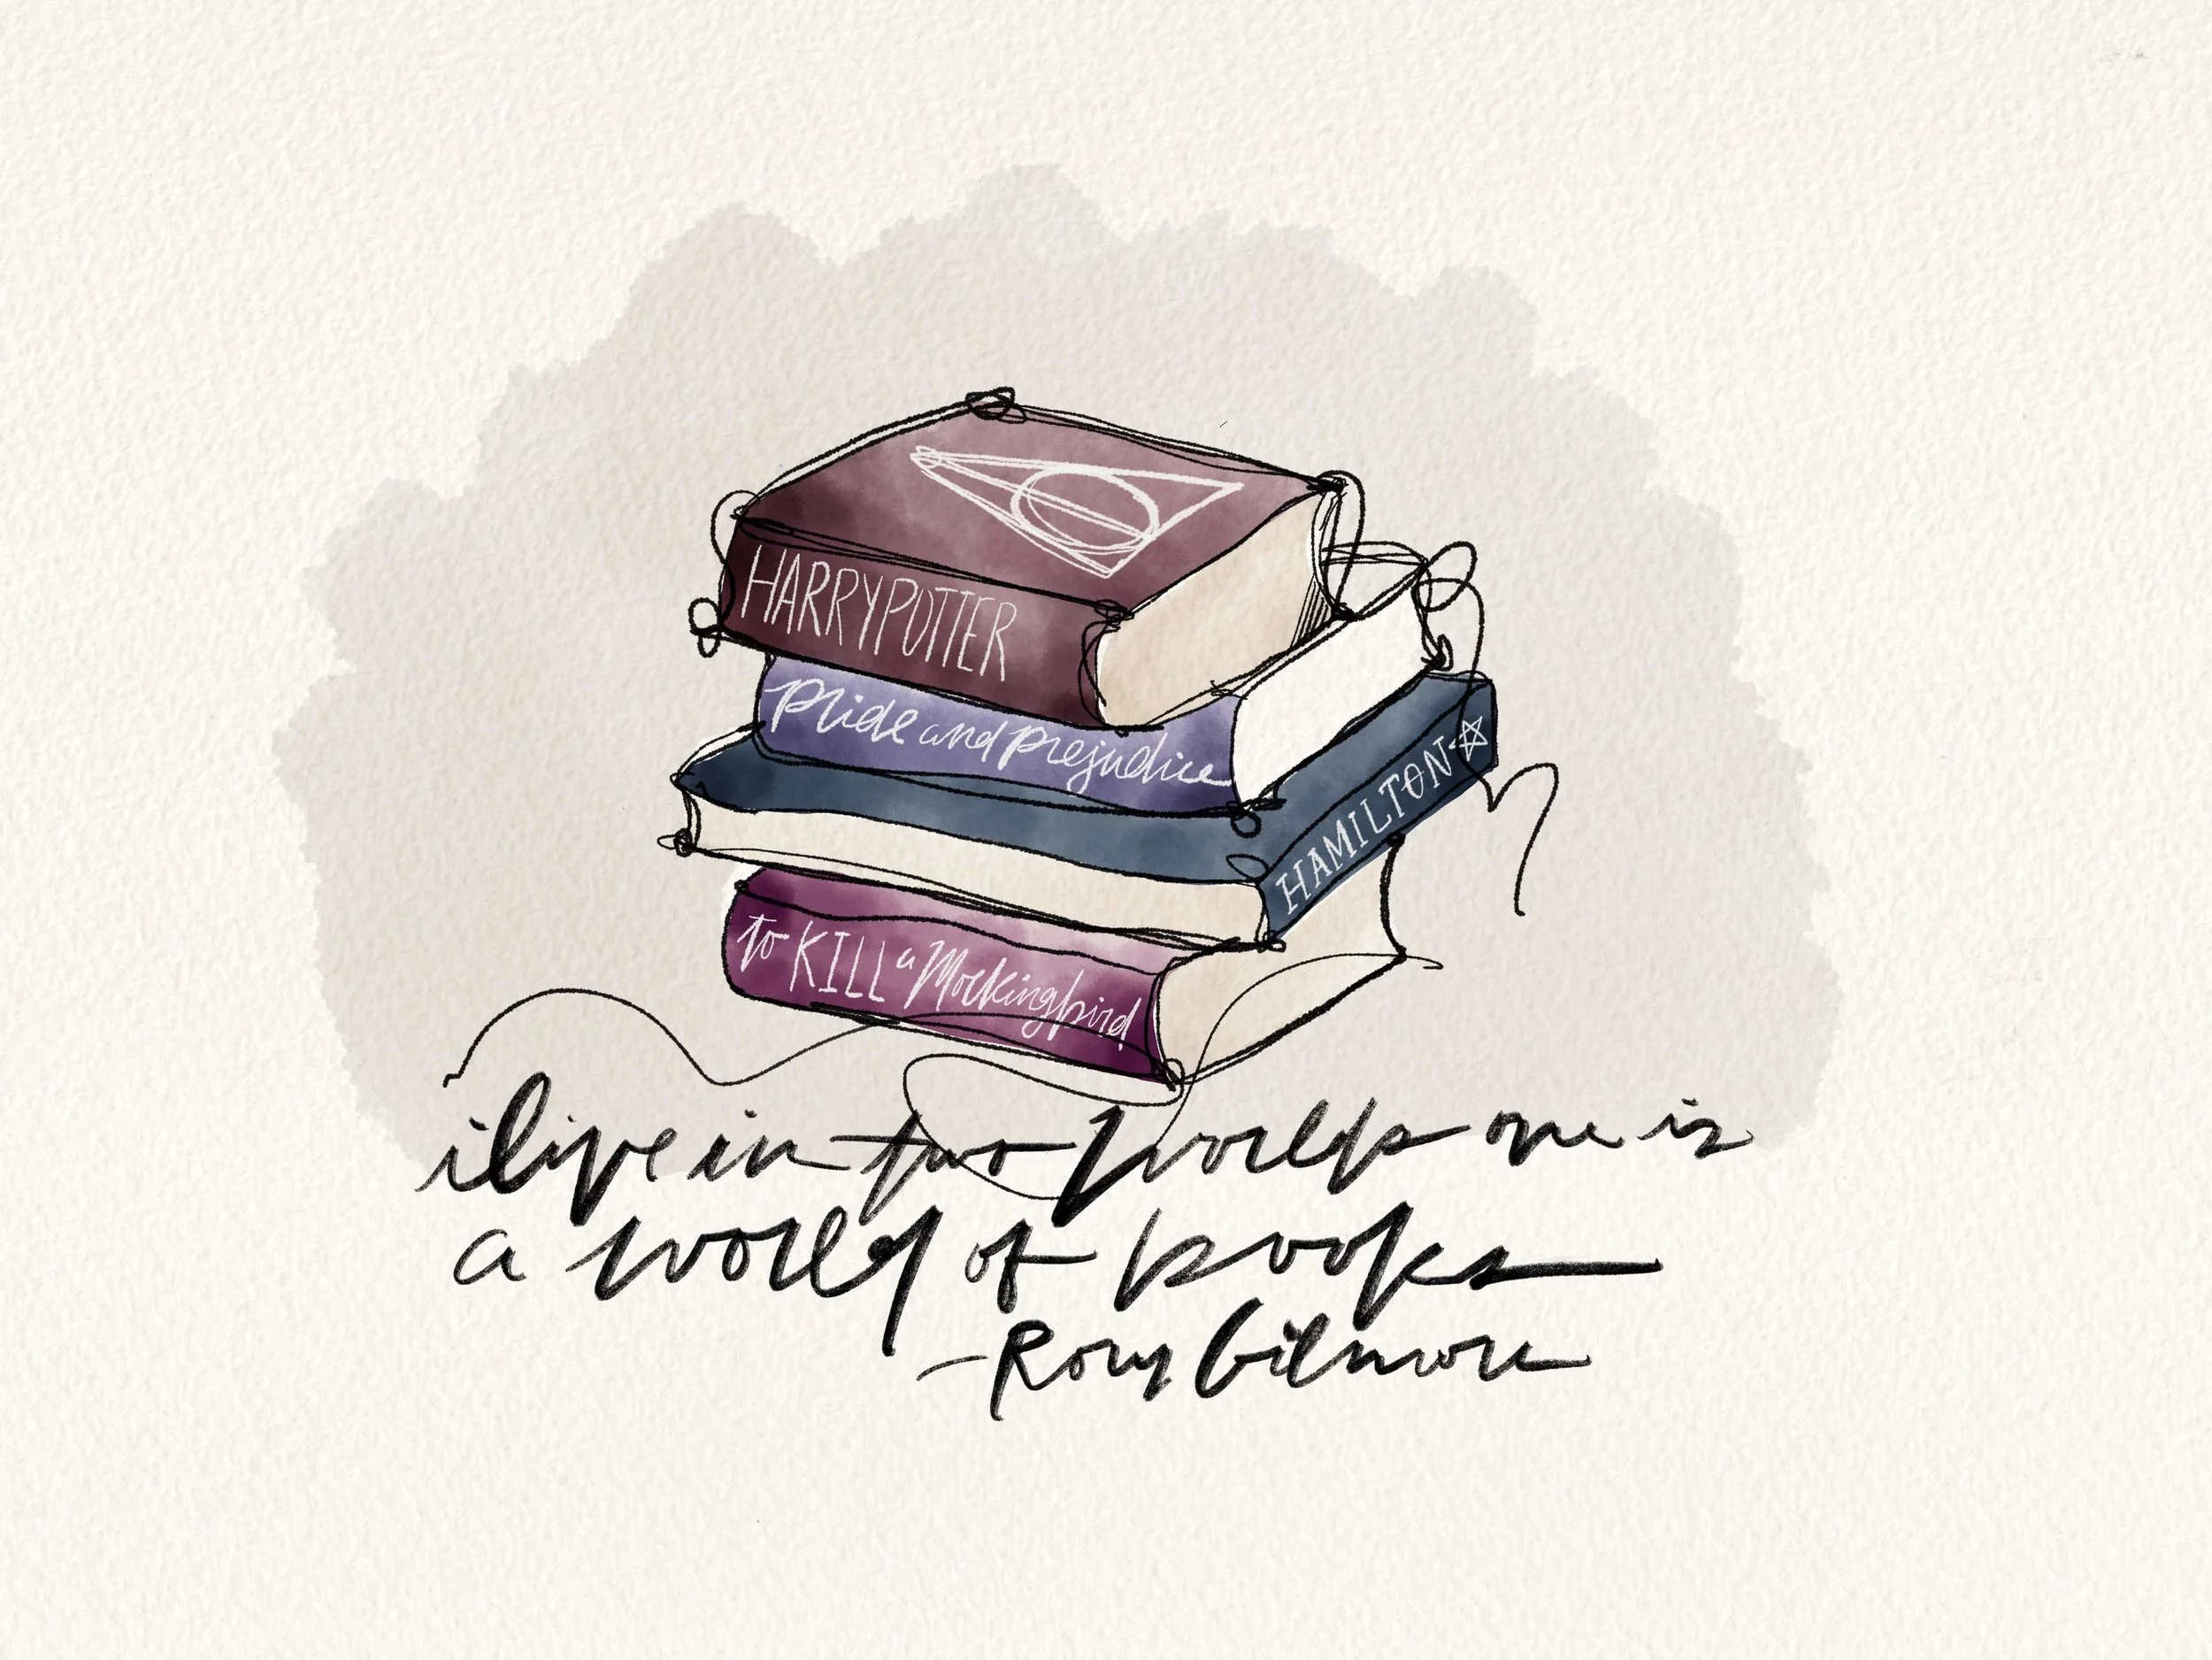 HARRY POTTER
pride and prejudice
HAMILTON
to KILL a Mockingbird
i live in two worlds one is
a world of books
- Rory Gilmore